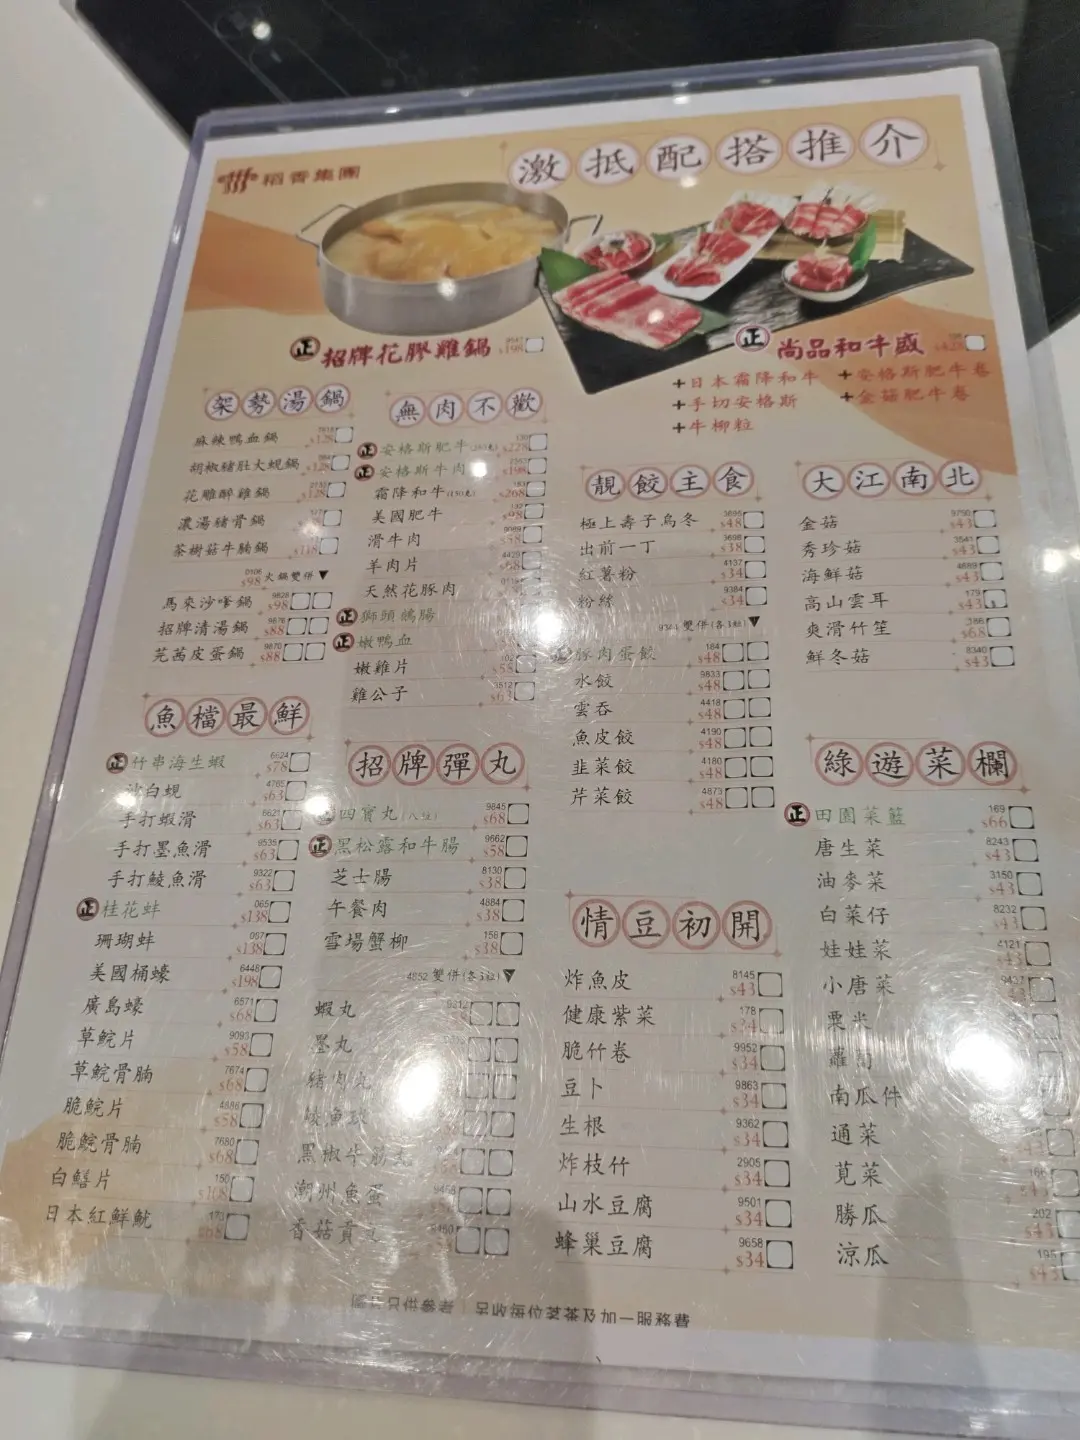 稻香集團
激抵配搭推介
正 招牌花膠雞鍋 $198
正 尚品和牛盛 $428
+日本霜降和牛 +安格斯肥牛卷
+手切安格斯 +金菇肥牛卷
+牛柳粒
架勢湯鍋
麻辣鴨血鍋 $128
胡椒豬肚大蜆鍋 $128
花雕醉雞鍋 $128
濃湯豬骨鍋
茶樹菇牛腩鍋 $118
0106 $98 火鍋雙併▼
馬來沙嗲鍋 9828 $98
招牌清湯鍋 9878 $88
芫茜皮蛋鍋 9870 $88
無肉不歡
正 安格斯肥牛 $228
正 安格斯牛肉 $198
霜降和牛(150克) $268
美國肥牛 $98
滑牛肉 $58
羊肉片 4429
天然花豚肉
正 獅頭鵝腸
正 嫩鴨血
嫩雞片 $58
雞公子 $63
魚檔最鮮
正 竹串海生蝦 6624 $78
沙白蜆 4765 $63
手打蝦滑 6621 $63
手打墨魚滑 9535 $63
手打鯪魚滑 9322 $63
正 桂花蚌 065 $138
珊瑚蚌 067 $138
美國桶蠔 6448 $198
廣島蠔 6571 $68
草鯇片 9093 $58
草鯇骨腩 7674 $68
脆鯇片 4886 $58
脆鯇骨腩 7680 $68
白鱔片 150 $108
日本紅鮮魷 173 $68
招牌彈丸
四寶丸(八粒) 9845 $68
正 黑松露和牛腸 9662 $58
芝士腸 8130 $38
午餐肉 4884 $38
雪場蟹柳 158 $38
4852 雙併(各3粒)▼
蝦丸
墨丸
豬肉丸
潮州魚蛋
香菇貢丸
靚餃主食
極上壽子烏冬 3695 $48
出前一丁 3698 $38
紅薯粉 4137 $34
粉絲 9384 $34
雙併(各3粒)▼
豚肉蛋餃 184 $48
水餃 9833 $48
雲吞 4418 $48
魚皮餃 4190 $48
韭菜餃 4180 $48
芹菜餃 4873 $48
情豆初開
炸魚皮 8145 $43
健康紫菜 178 $34
脆竹卷 9952 $34
豆卜 9863 $34
生根 9362 $34
炸枝竹 2905 $34
山水豆腐 9501 $34
蜂巢豆腐 9658 $34
大江南北
金菇 9790 $43
秀珍菇 3541 $43
海鮮菇 4689 $43
高山雲耳 179 $43
爽滑竹笙 386 $68
鮮冬菇 8340 $43
綠遊菜欄
正 田園菜籃 169 $66
唐生菜 8243 $43
油麥菜 3150 $43
白菜仔 8232 $43
娃娃菜 4121 $43
小唐菜
粟米
蘿蔔
南瓜件
通菜 $43
莧菜 $43
勝瓜 202 $43
涼瓜 195 $43
圖片只供參考｜另收每位茗茶及加一服務費